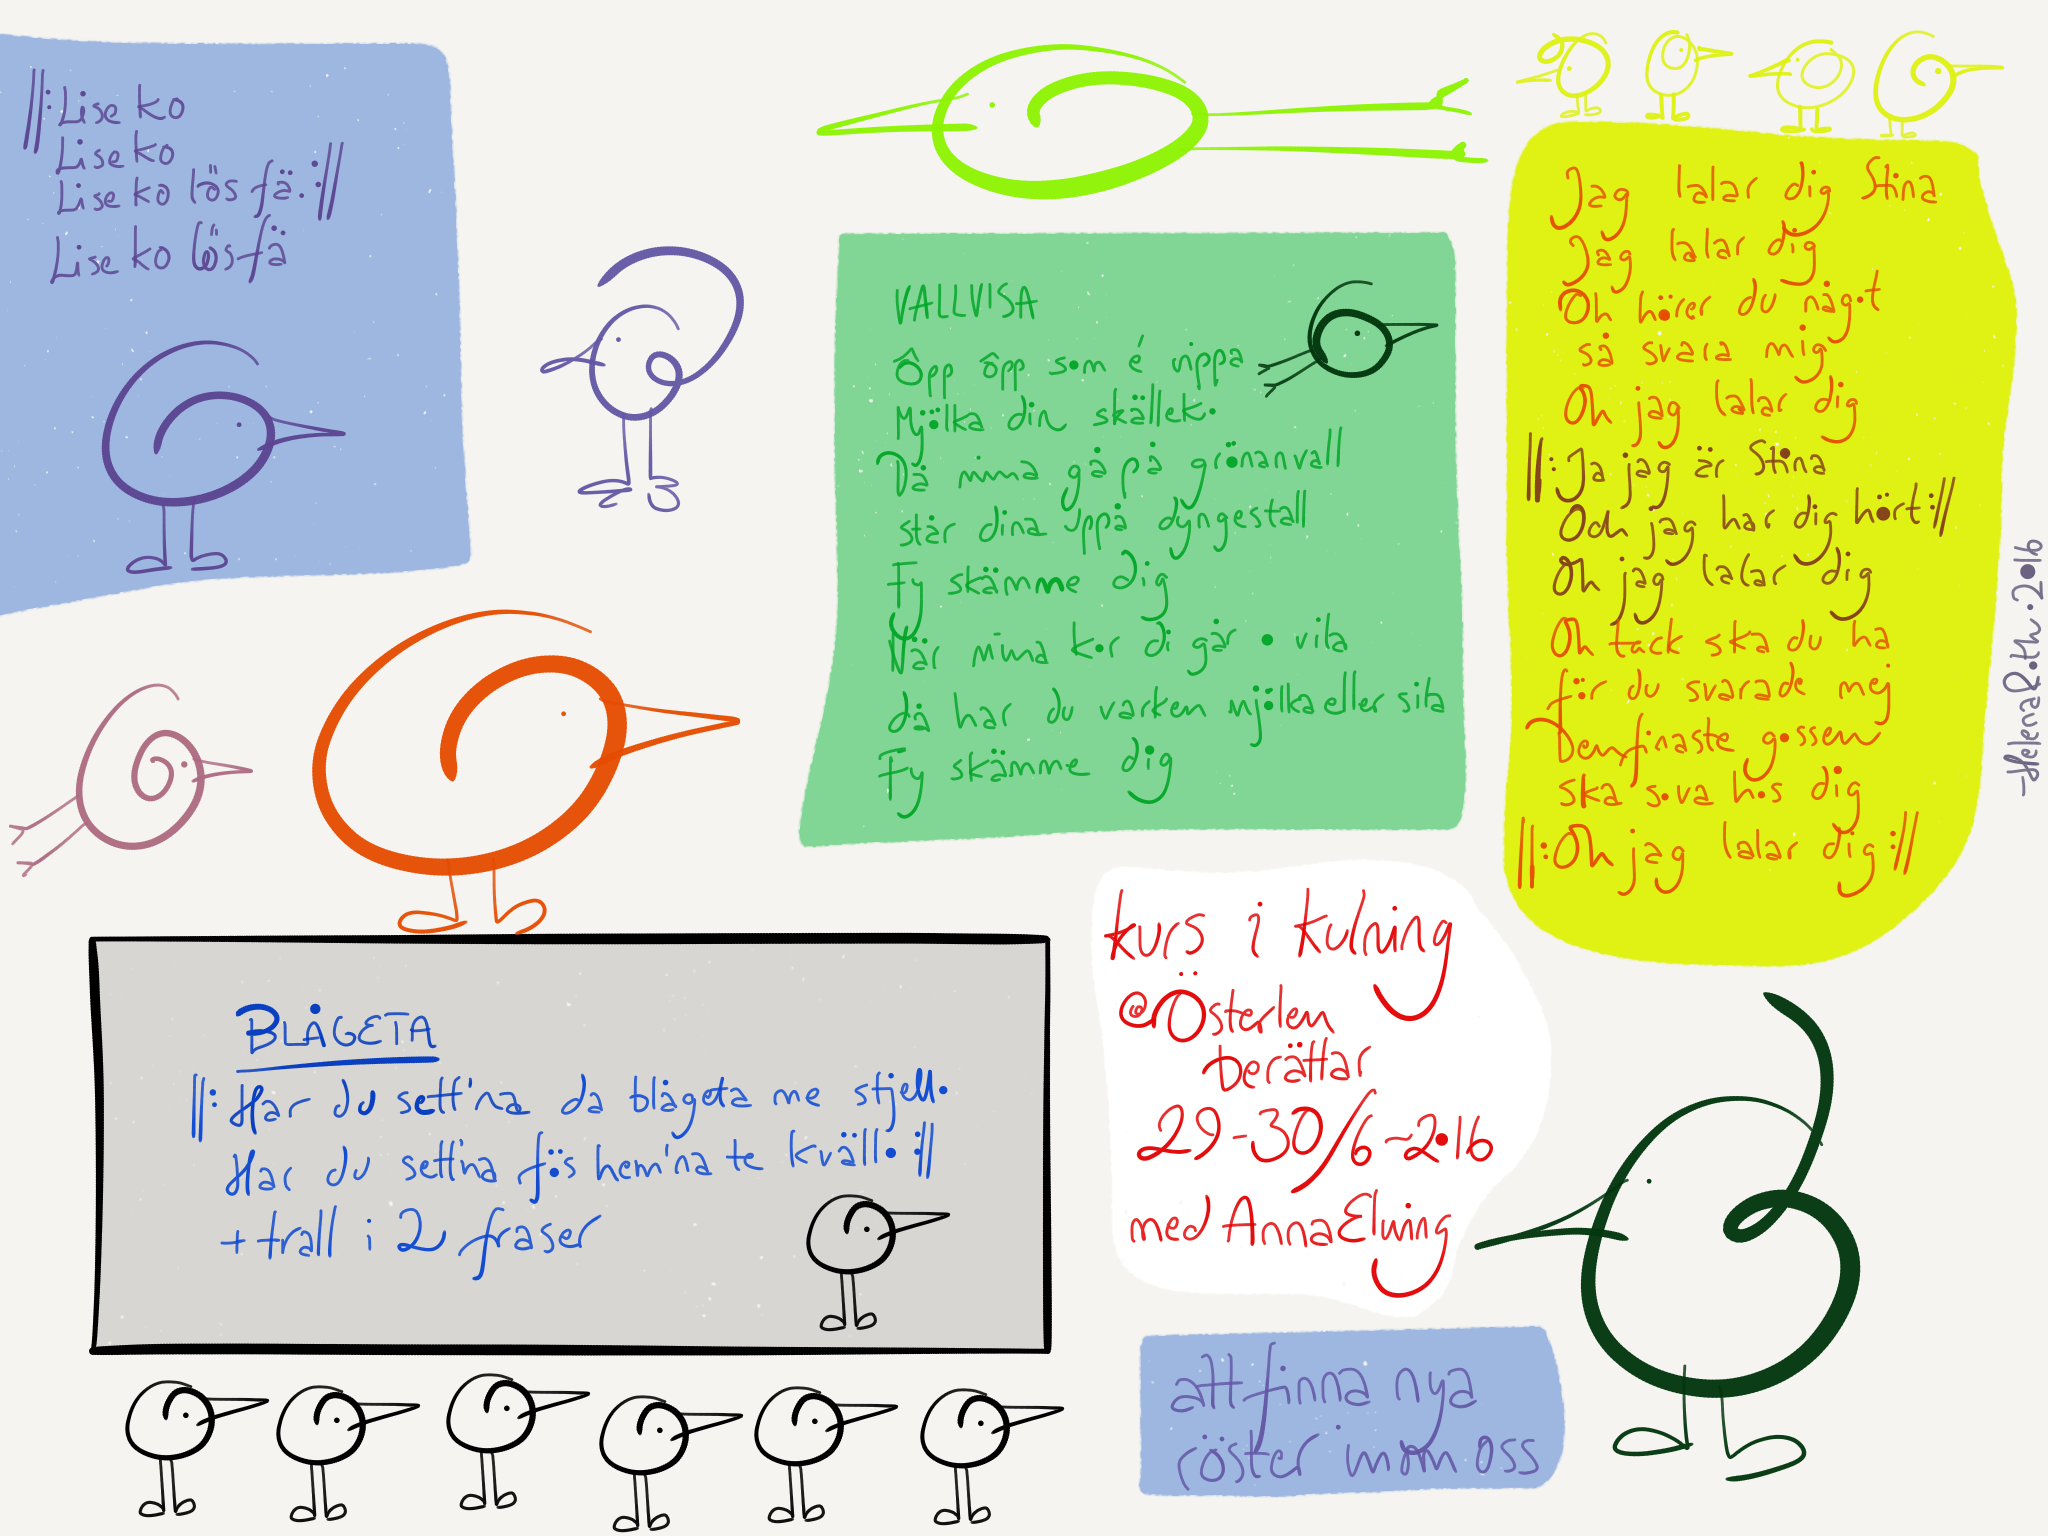 ‖: Lise ko
Lise ko
Lise ko lös fä. :‖
Lise ko lösfä
VALLVISA
Ôpp ôpp som é vippa
Mjölka din skälleko
Då mina gå på grönanvall
står dina uppå dyngestall
Fy skämme dig
När mina kor di går o vila
då har du varken mjölka eller sila
Fy skämme dig
Jag lalar dig Stina
Jag lalar dig
Oh hörer du något
så svara mig
Oh jag lalar dig
‖: Ja jag är Stina
Och jag har dig hört :‖
Oh jag lalar dig
Oh tack ska du ha
för du svarade mej
Den finaste gossen
ska sova hos dig
‖: Oh jag lalar dig :‖
-HelenaRoth. 2016
BLÅGETA
‖: Har du sett'na da blågeta me stjello
Har du sett'na fös hem'na te kvällo :‖
+ trall i 2 fraser
kurs i kulning
@Österlen
berättar
29-30/6~2016
med Anna Elwing
att finna nya
röster inom oss